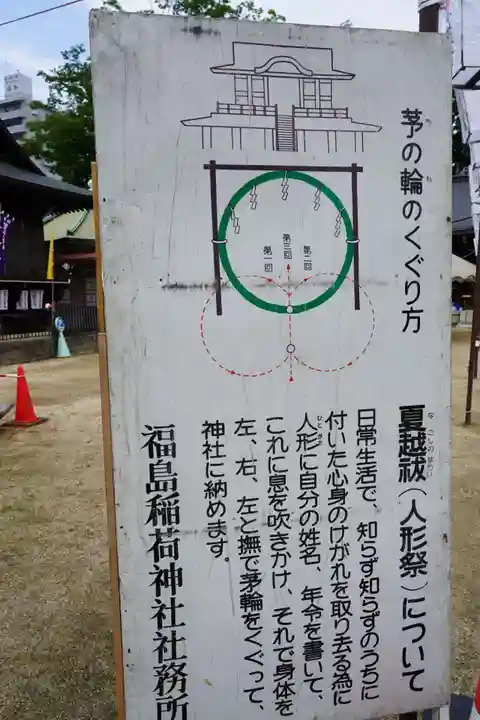 茅の輪のくぐり方
ち
わ
第一回
第三回
第二回
夏越祓（人形祭）について
なごしのはらい
日常生活で、知らず知らずのうちに
付いた心身のけがれを取り去る為に
人形に自分の姓名、年令を書いて、
ひとがた
これに息を吹きかけ、それで身体を
左、右、左と撫で茅輪をくぐって、
神社に納めます。
福島稲荷神社社務所